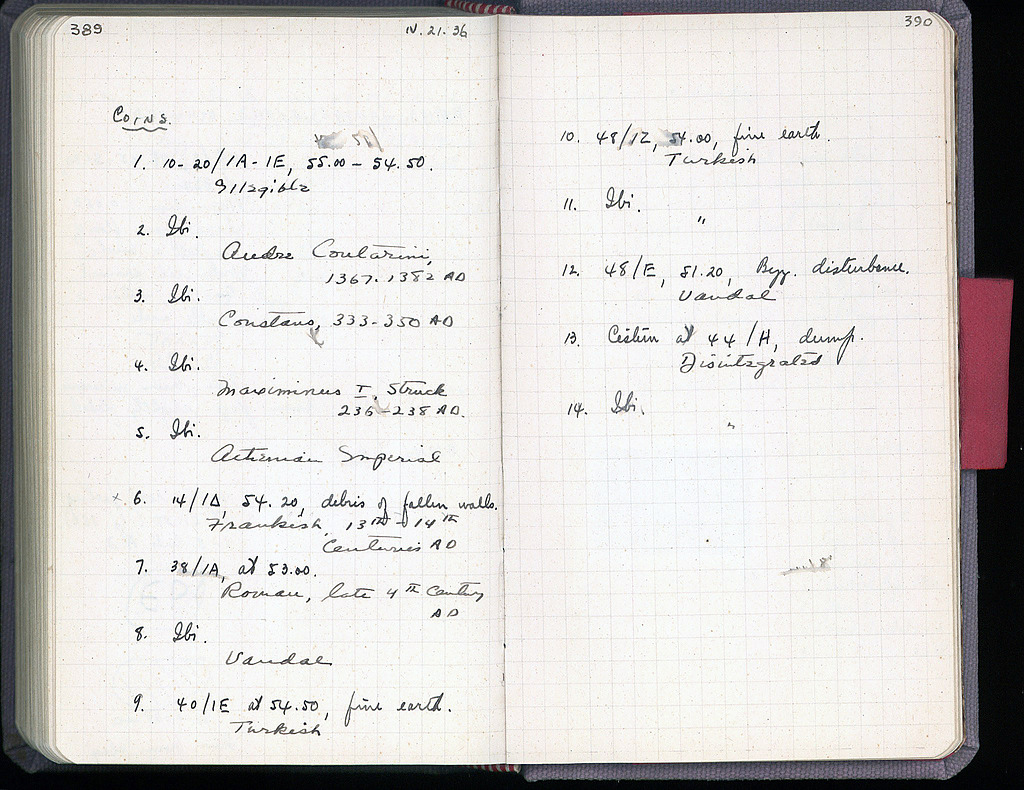 389
IV. 21. 36
COINS.
1. 10-20/1A-1E, 55.00 - 54.50.
Illegible
2. Ibi.
Andre Contarini,
1367-1382 AD
3. Ibi.
Constans, 333-350 AD
4. Ibi.
Maximinus I, Struck
236-238 AD.
5. Ibi.
Athenian Imperial
x 6. 14/1Δ, 54.20, debris of fallen walls.
Frankish, 13th - 14th
Centuries AD
7. 38/1A, at 53.00.
Roman, late 4th Century
AD
8. Ibi.
Vandal
9. 40/1E at 54.50, fine earth.
Turkish
390
10. 48/1Z, 54.00, fine earth.
Turkish
11. Ibi.
"
12. 48/E, 51.20, Byz. disturbance.
Vandal
13. Cistern at 44/H, dump.
Disintegrated
14. Ibi.
"